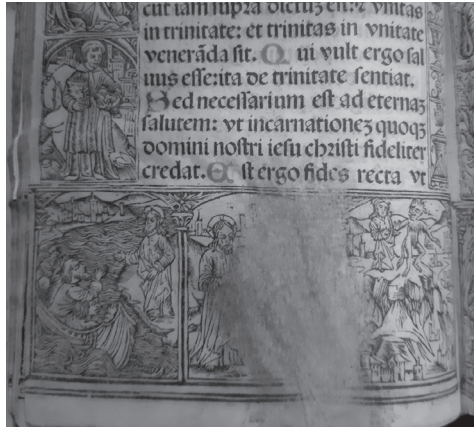 cut iam supra dictuʒ est: ⁊ vnitas
in trinitate: et trinitas in vnitate
venerãda sit. Q ui vult ergo sal
uus esse: ita de trinitate sentiat.
S ed necessarium est ad eternaʒ
salutem: vt incarnationeʒ quoqʒ
domini nostri iesu christi fideliter
credat. E st ergo fides recta vt